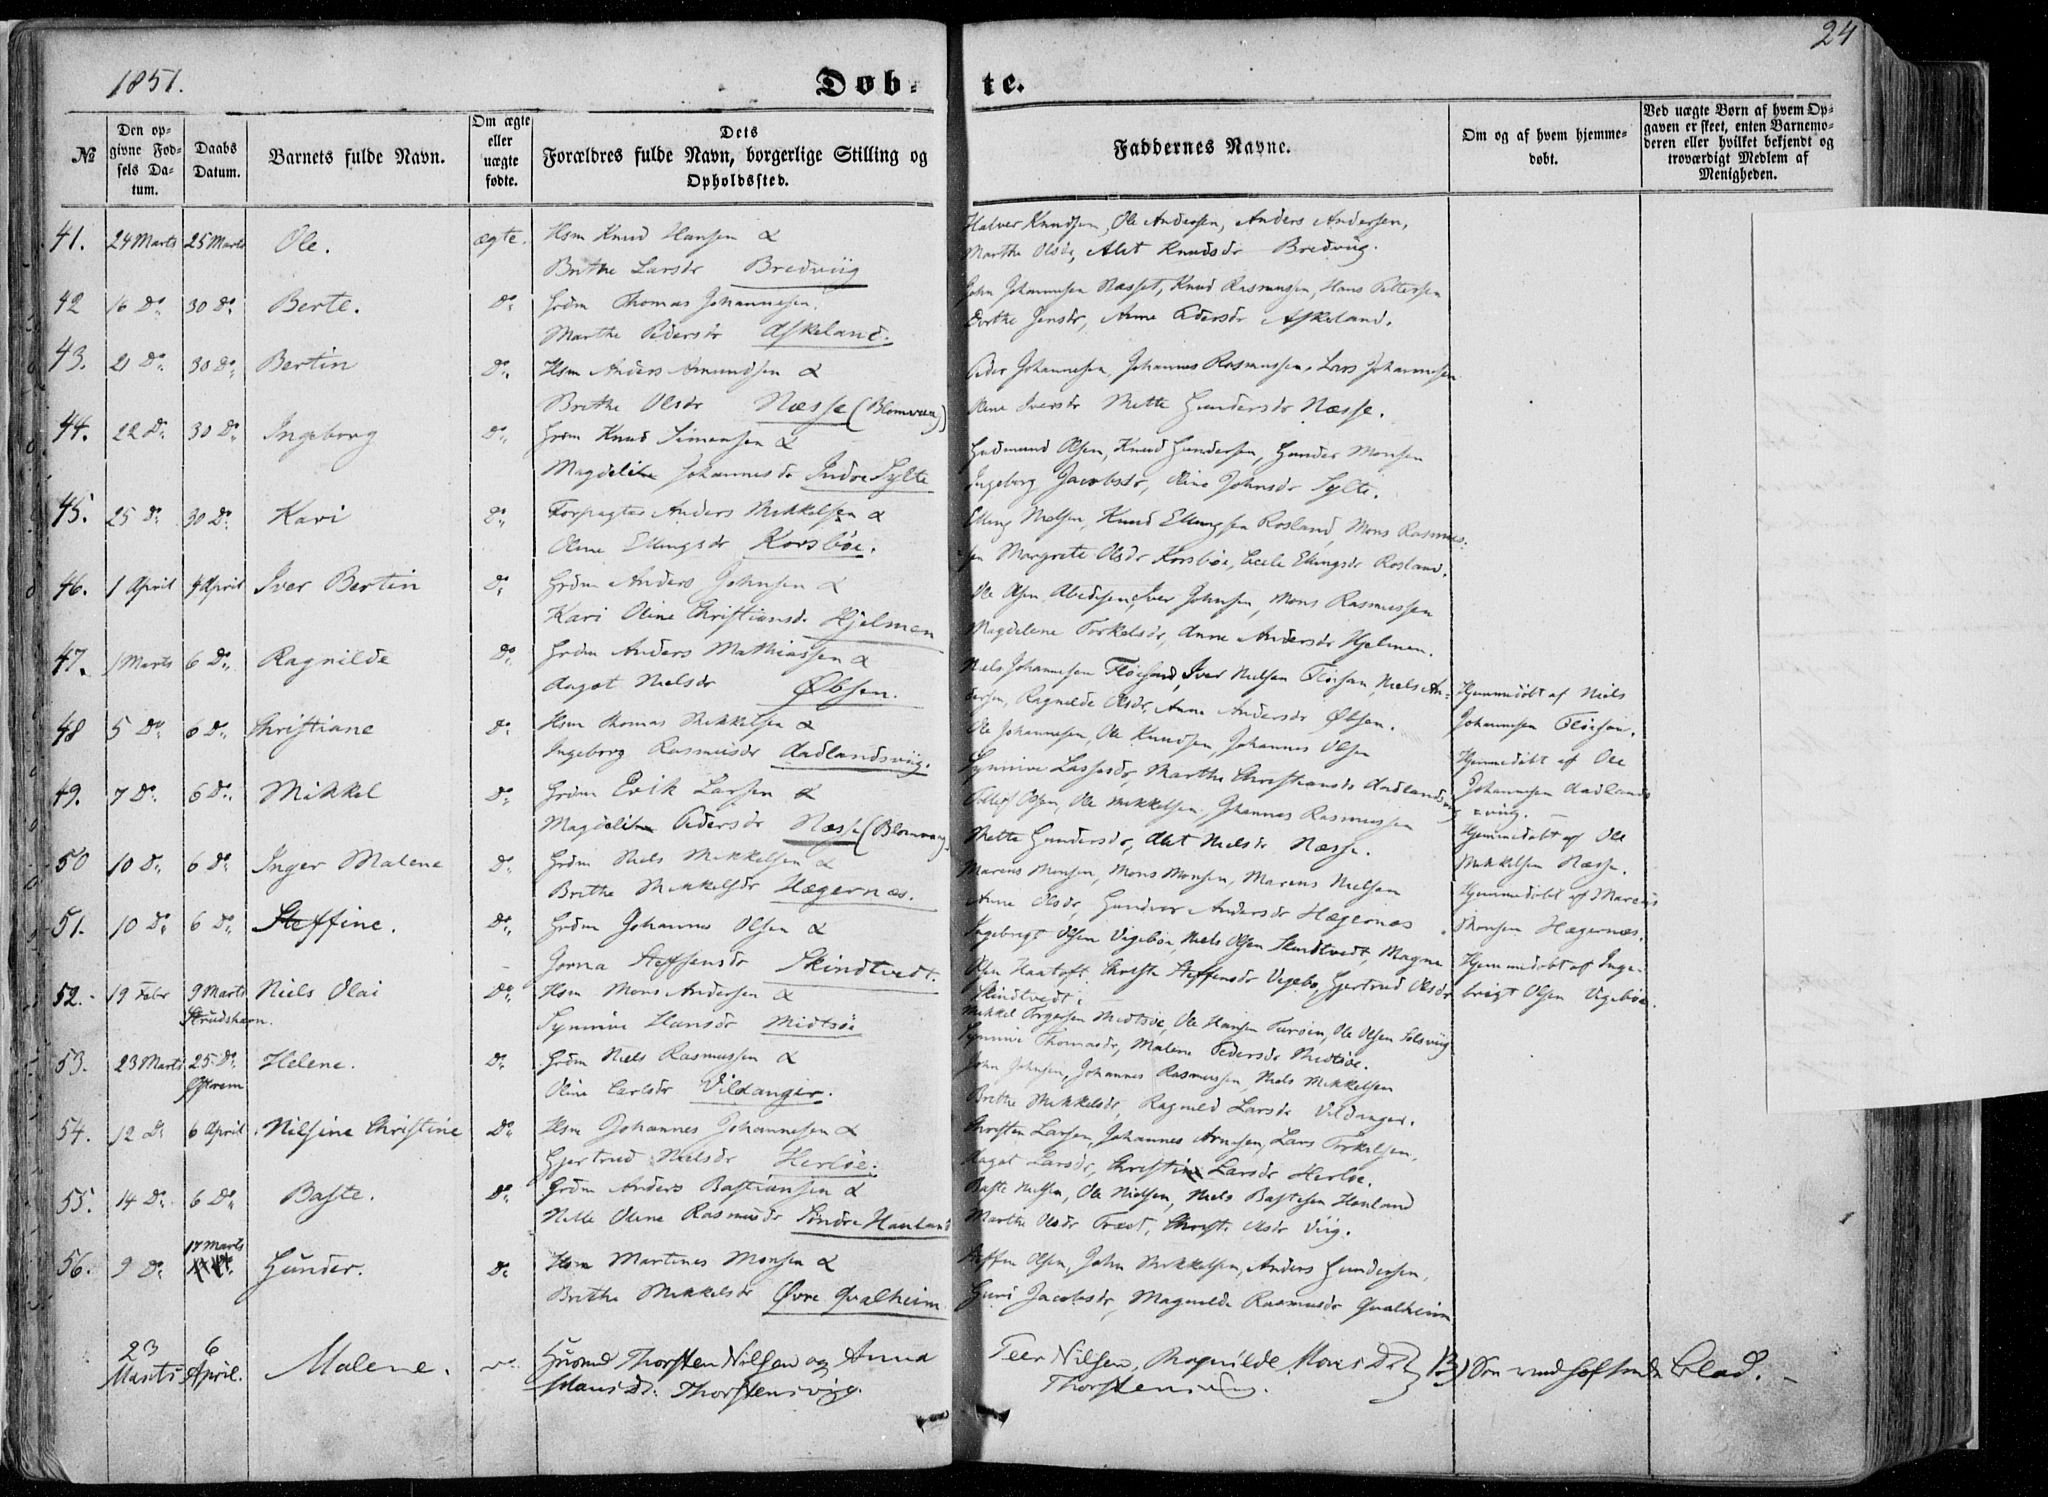 24
1851.
Døb-
te.
№
Den op-
givne Fød-
sels Da-
tum.
Daabs
Datum.
Barnets fulde Navn.
Om ægte
eller
uægte
fødte.
Dets
Forældres fulde Navn, borgerlige Stilling og
Opholdssted.
Faddernes Navne.
Om og af hvem hjemme-
døbt.
Ved uægte Børn af hvem Op-
gaven er skeet, enten Barnemo-
deren eller hvilket bekjendt og
troværdigt Medlem af
Menigheden.
41. 24 Marts 25 Marts Ole. ægte. Hsm Knud Hansen &
Brithe Larsdr Bredviig
Halver Knudsen, Ole Andersen, Anders Andersen,
Marthe Olsdr, Alet Knudsdr Bredviig.
42 16 Do 30 Do Berte. Do Grdm Thomas Johannesen.
Marthe Pedersdr Askeland.
John Johannesen Næsset, Knud Rasmussen, Hans Pettersen
Dorthe Jensdr, Anne Pedersdr Askeland.
43. 21 Do 30 Do Bertin Do Hsm Anders Amundsen &
Brithe Olsdr Næsse (Blomvaag)
Peder Johannesen, Johannes Rasmussen, Lars Johannesen
Oline Iversdr Mette Gundersdr Næsse.
44. 22 Do 30 Do Ingeborg Do Grdm Knud Simensen &
Magdeline Johannesdr Indre Sylte
Gudmund Olsen, Knud Gundersen, Gunder Monsen
Ingeborg Jacobsdr, Oline Johnsdr Sylte.
45. 25 Do 30 Do Kari Do Forpagter Anders Mikkelsen &
Oline Ellingsdr Korsbøe.
Elling Nielsen, Knud Ellingsen Rosland, Mons Rasmus-
sen Margrete Olsdr Korsbøe, Cecele Ellingsdr Rosland.
46. 1 April 4 April Iver Bertin Do Grdm Anders Johnsen &
Kari Oline Christiansdr Hjelmen
Ole Olsen Iver Johnsen, Mons Rasmussen
Magdelene Torkelsdr, Anne Andersdr Hjelmen.
47. 1 Marts 6 Do Ragnilde Do Grdm Anders Mathiassen &
Aagot Nielsdr Øbsen.
Niels Johannesen Fløisand, Iver Nielsen Fløisan, Niels An-
dersen, Ragnilde Olsdr, Anne Andersdr Øbsen.
Hjemmedøbt af Niels
Johannesen Fløisan.
48 5 Do 6 Do Christiane Do Hsm Thomas Mikkelsen &
Ingeborg Rasmusdr Aadlandsviig.
Ole Johannesen, Ole Knudsen, Johannes Olsen
Synnive Lassesdr, Marthe Christiansdr Aadlandsviig
Hjemmedøbt af Ole
Johannesen Aadlands
=viig.
49. 7 Do 6 Do Mikkel Do Grdm Erik Larsen &
Magdeline Pedersdr Næsse (Blomvaag)
Tollef Olsen, Ole Mikkelsen, Johannes Rasmussen
Mette Gundersdr, Alet Nielsdr Næsse.
Hjemmedøbt af Ole
Mikkelsen Næsse.
50 10 Do 6 Do Inger Malene Do Grdm Niels Mikkelsen &
Brithe Mikkelsdr Hægernæs.
Marcus Monsen, Mons Monsen, Marcus Nielsen
Anne Olsdr, Gundvor Andersdr Hægernæs
Hjemmedøbt af Marcus
Monsen Hægernæs.
51. 10 Do 6 Do Steffine. Do Grdm Johannes Olsen &
Gorna Steffensdr Skindtvedt.
Ingebrigt Olsen Vigebøe, Niels Olsen Skindtvedt, Magne
Olsen Haatoft, Christi Steffensdr Vigebø, Gjertrud Olsdr
Skindtvedt.
Hjemmedøbt af Inge-
brigt Olsen Vigebøe.
52. 19 Febr 9 Marts Niels Olai Do Hsm Mons Andersen &
Strudshavn.
Synnive Hansdr Midtsøe
Mikkel Torgersen Midtsøe, Ole Hansen Turøen, Ole Olsen Solsviig
Synnive Thomasdr, Malene Pedersdr Midtsøe.
53. 23 Marts 25 Do Helene. Do Grdm Niels Rasmussen &
Østrem
Oline Carlsdr Vildanger.
John Johnsen, Johannes Rasmussen, Niels Mikkelsen
Brithe Mikkelsdr, Ragnild Larsdr Vildanger.
54. 12 Do 6 April Nilsine Christine Do Hsm Johannes Johannesen &
Gjertrud Nielsdr Herløe.
Christen Larsen, Johannes Arnesen, Lars Torkelsen,
Aagot Larsdr, Christine Larsdr Herløe.
55. 14 Do 6 Do Baste. Do Grdm Anders Bastiansen &
Nille Oline Rasmusdr Søndre Hauland
Baste Nielsen, Ole Nielsen, Niels Bastesen Hauland
Marthe Olsdr Træet, Christi Olsdr Viig.
56. 9 Do 17 Marts Gunder. Do Hsm Martines Monsen &
Brithe Mikkelsdr Øvre Qvalheim
Steffen Olsen, John Mikkelsen, Anders Gundersen,
Guri Jacobsdr, Magnilde Rasmusdr Qvalheim
23 Marts 6 April. Malene. Huusmd Thorsten Nilsen og Anna
Monsdt. Thorstensvig.
Peer Nilsen, Ragnilde Monsdtr
Thorstensvig.
Blad.